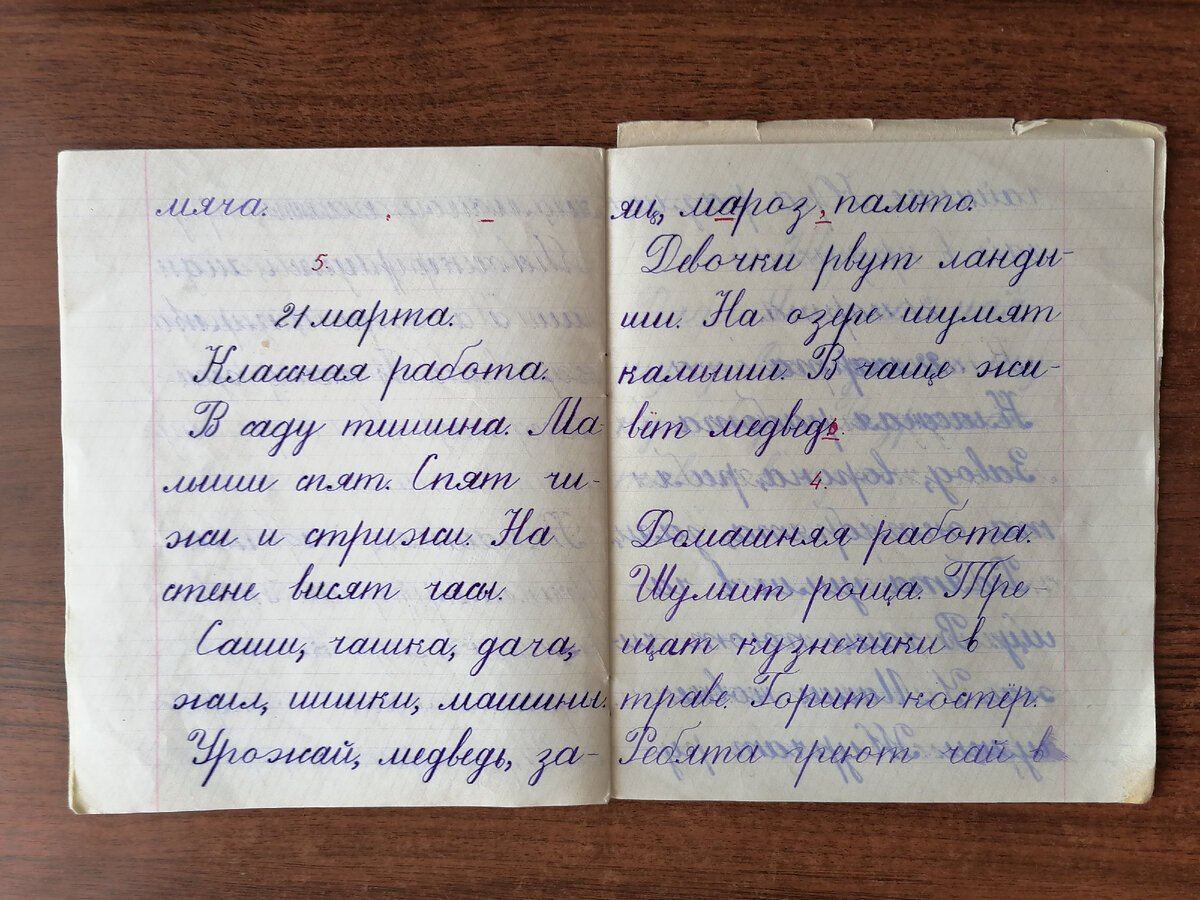 мяча.
5.
21 марта.
Классная работа.
В саду тишина. Ма-
лыши спят. Спят чи-
жи и стрижи. На
стене висят часы.
Саши, чашка, дача,
жил, шишки, машины.
Урожай, медведь, за-
яц, мароз, пальто.
Девочки рвут ланды-
ши. На озере шумят
камыши. В чаще жи-
вёт медведь.
4.
Домашняя работа.
Шумит роща. Тре-
щат кузнечики в
траве. Горит костёр.
Ребята греют чай в